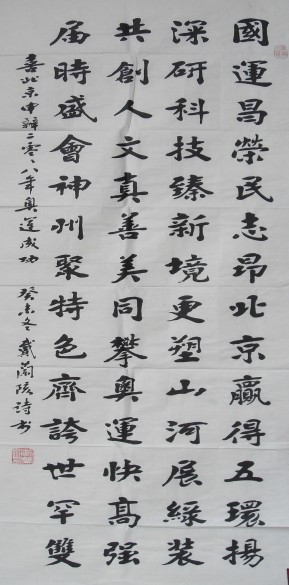 國運昌榮民志昂北京贏得五環揚
深研科技臻新境更塑山河展綠裝
共創人文真善美同攀奧運快高强
屆時盛會神州聚特色齊誇世罕雙
喜北京申辦二零零八年奧運成功
癸未冬戴蘭陔詩书